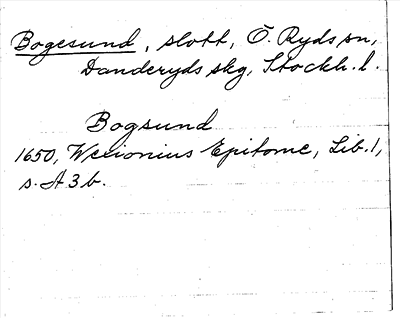 Bogesund, slott, Ö. Ryds sn,
Danderyds skg, Stockh. l.
Bogsund
1650, Wexionius Epitome, Lib. 1,
s. A 3 b.